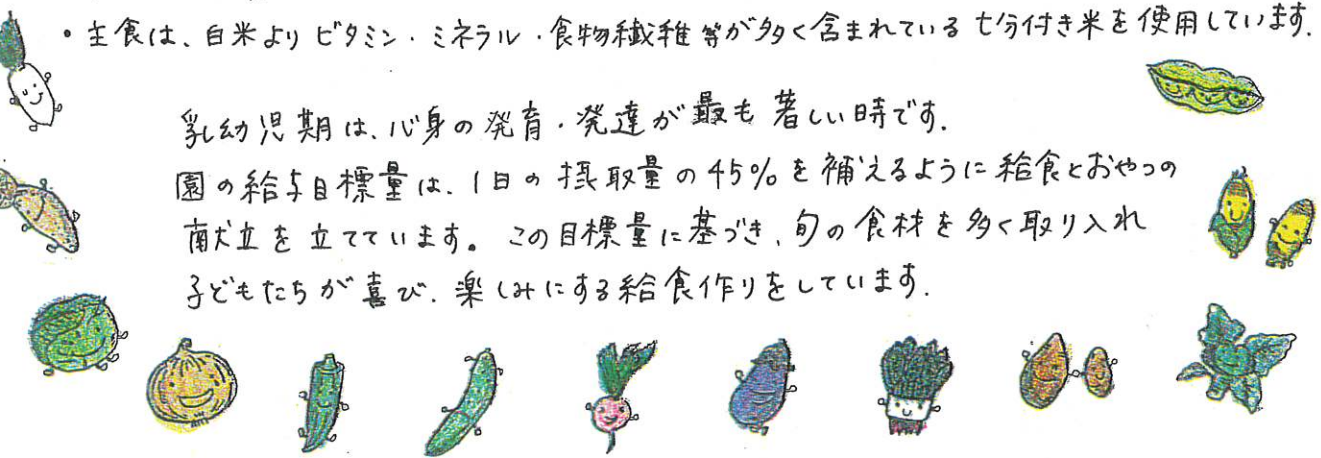 ・主食は、白米よりビタミン・ミネラル・食物繊維等が多く含まれている七分付き米を使用しています.
乳幼児期は、心身の発育・発達が最も著しい時です.
園の給与目標量は、1日の摂取量の45%を補えるように給食とおやつの
献立を立てています。この目標量に基づき、旬の食材を多く取り入れ
子どもたちが喜び、楽しみにする給食作りをしています.